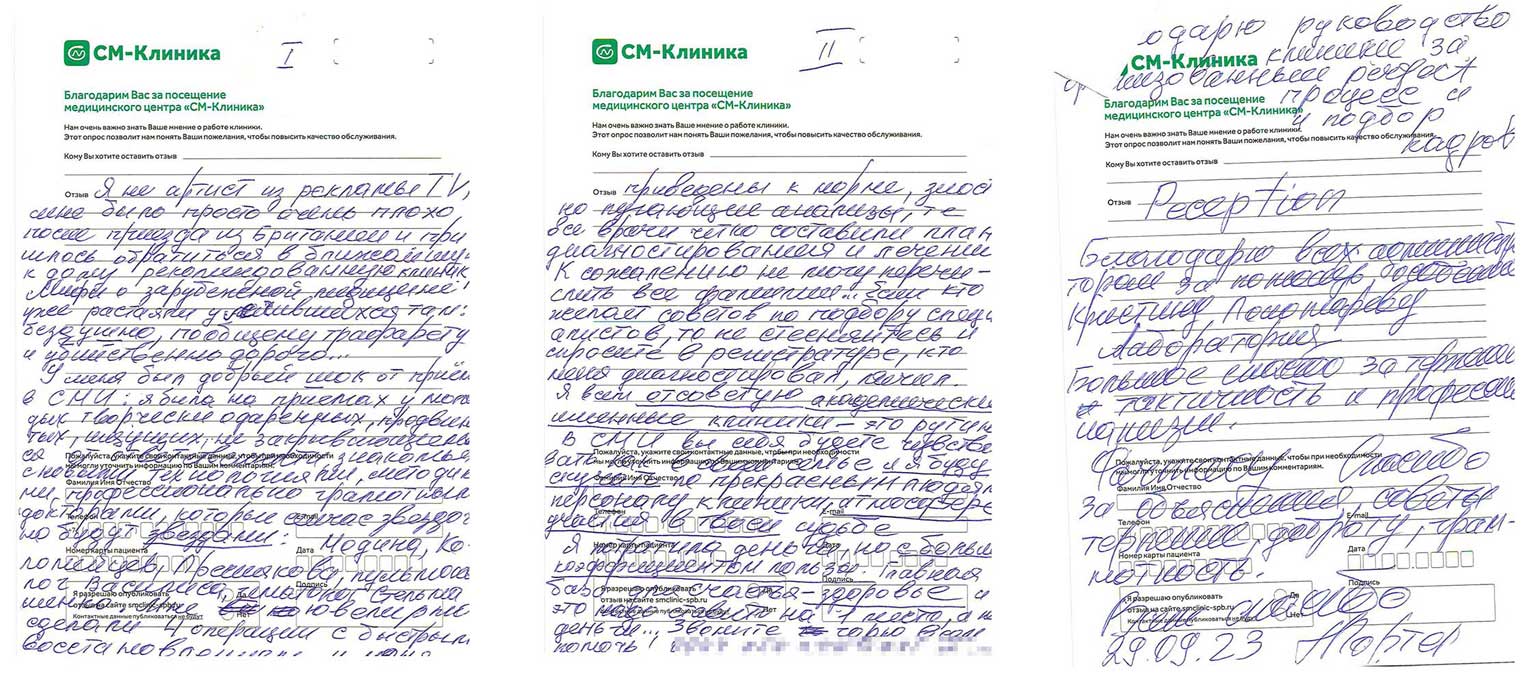 СМ-Клиника
I
Благодарим Вас за посещение
медицинского центра «СМ-Клиника»
Нам очень важно знать Ваше мнение о работе клиники.
Этот опрос позволит нам понять Ваши пожелания, чтобы повысить качество обслуживания.
Кому Вы хотите оставить отзыв
Отзыв Я не артист из рекламы TV,
мне было просто очень плохо
после приезда из Британии и при
шлось обратиться в ближайшую
к дому рекомендованную клиник
Мифы о зарубежной медицине
уже растаяли у лечившихся там:
бездушно, по общему трафарету
и убийственно дорого...
У меня был добрый шок от приём
в СМИ: я была на приемах у моло
дых творчески одаренных, продвин
тых, ищущих, не закрывающи
ся знакомы
Пожалуйста, укажите свои контактные данные, чтобы при необходимости
мы могли уточнить информацию по Вашим комментариям.
с новыми технологиями, методик
Фамилия Имя Отчество
ми, профессионально грамотным
докторами, которые сейчас звездо
Телефон
E-mail
+7
но будут звездами: Мадина, Ко-
Номер карты пациента
Дата
ломийцев, пульмоно
Подпись
лог Василиса
Я разрешаю опубликовать
отзыв на сайте smclinic-spb.ru
Да
Нет
Контактные данные публиковаться не будут
ювелирные
сделали 4 операции с быстрым
восстановлением и
СМ-Клиника
II
Благодарим Вас за посещение
медицинского центра «СМ-Клиника»
Нам очень важно знать Ваше мнение о работе клиники.
Этот опрос позволит нам понять Ваши пожелания, чтобы повысить качество обслуживания.
Кому Вы хотите оставить отзыв
Отзыв приведены к норме,
но пугающие анализы, те
все врачи четко составили план
диагностирования и лечения
К сожалению не могу перечи-
слить все фамилии... Если кто
желает советов по подбору специ
алистов, то не стесняйтесь и
спросите в регистратуре, кто
меня диагностировал, лечил.
Я всем отсоветую академические
именные клиники - это рутин
В СМИ вы себя будете чувство
Пожалуйста, укажите свои контактные данные, чтобы при необходимости
мы могли уточнить информацию по Вашим комментариям.
и я буду
Фамилия Имя Отчество
по прекрасным людям
персоналу клиники, атмосфере
Телефон
E-mail
участия в твоей судьбе
Номер карты пациента
Дата
Я тратила деньги, но с больш
коэффициентом пользы. Главная
Подпись
база счастья - здоровье и
Я разрешаю опубликовать
отзыв на сайте smclinic-spb.ru
Да
Нет
Контактные данные публиковаться не будут
это на 1 место, а н
деньги... Звоните Вам
помочь!
одарю руководство
СМ-Клиника
клиники за
изованный
процесс и
и подбор
кадров
Благодарим Вас за посещение
медицинского центра «СМ-Клиника»
Нам очень важно знать Ваше мнение о работе клиники.
Этот опрос позволит нам понять Ваши пожелания, чтобы повысить качество обслуживания.
Кому Вы хотите оставить отзыв
Отзыв Реception
Благодарю всех администра
торов за помощь, особенно
Кристину Пономареву
Лаборатория
Большое спасибо за терпение
тактичность и професси
нализм.
Пожалуйста, укажите свои контактные данные, чтобы при необходимости
мы могли уточнить информацию по Вашим комментариям.
спасибо
Фамилия Имя Отчество
за объяснения советы
Телефон
E-mail
терпение, доброту, грам-
Номер карты пациента
Дата
мотность.
Подпись
Я разрешаю опубликовать
отзыв на сайте smclinic-spb.ru
Да
Нет
Контактные данные публиковаться не будут
спасибо
29.09.23